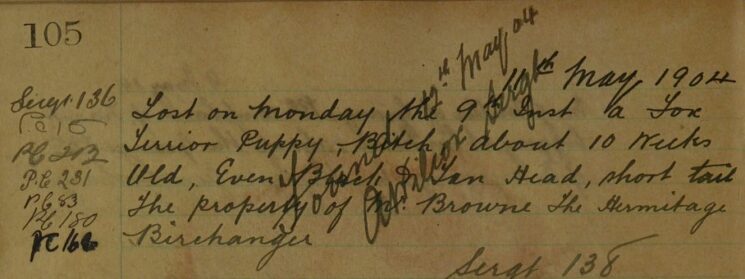 105
10th May 1904
Sergt. 136
PC 15
PC 212
P.C 231
P.C 83
PC 180
PC 166
Lost on Monday the 9th Inst a Fox
Terrior Puppy, Bitch, about 10 Weeks
Old, Even Black & Tan Head, short tail
The property of Mr. Browne The Hermitage
Birchanger
Sergt 138
Found
th May 04
Sergt